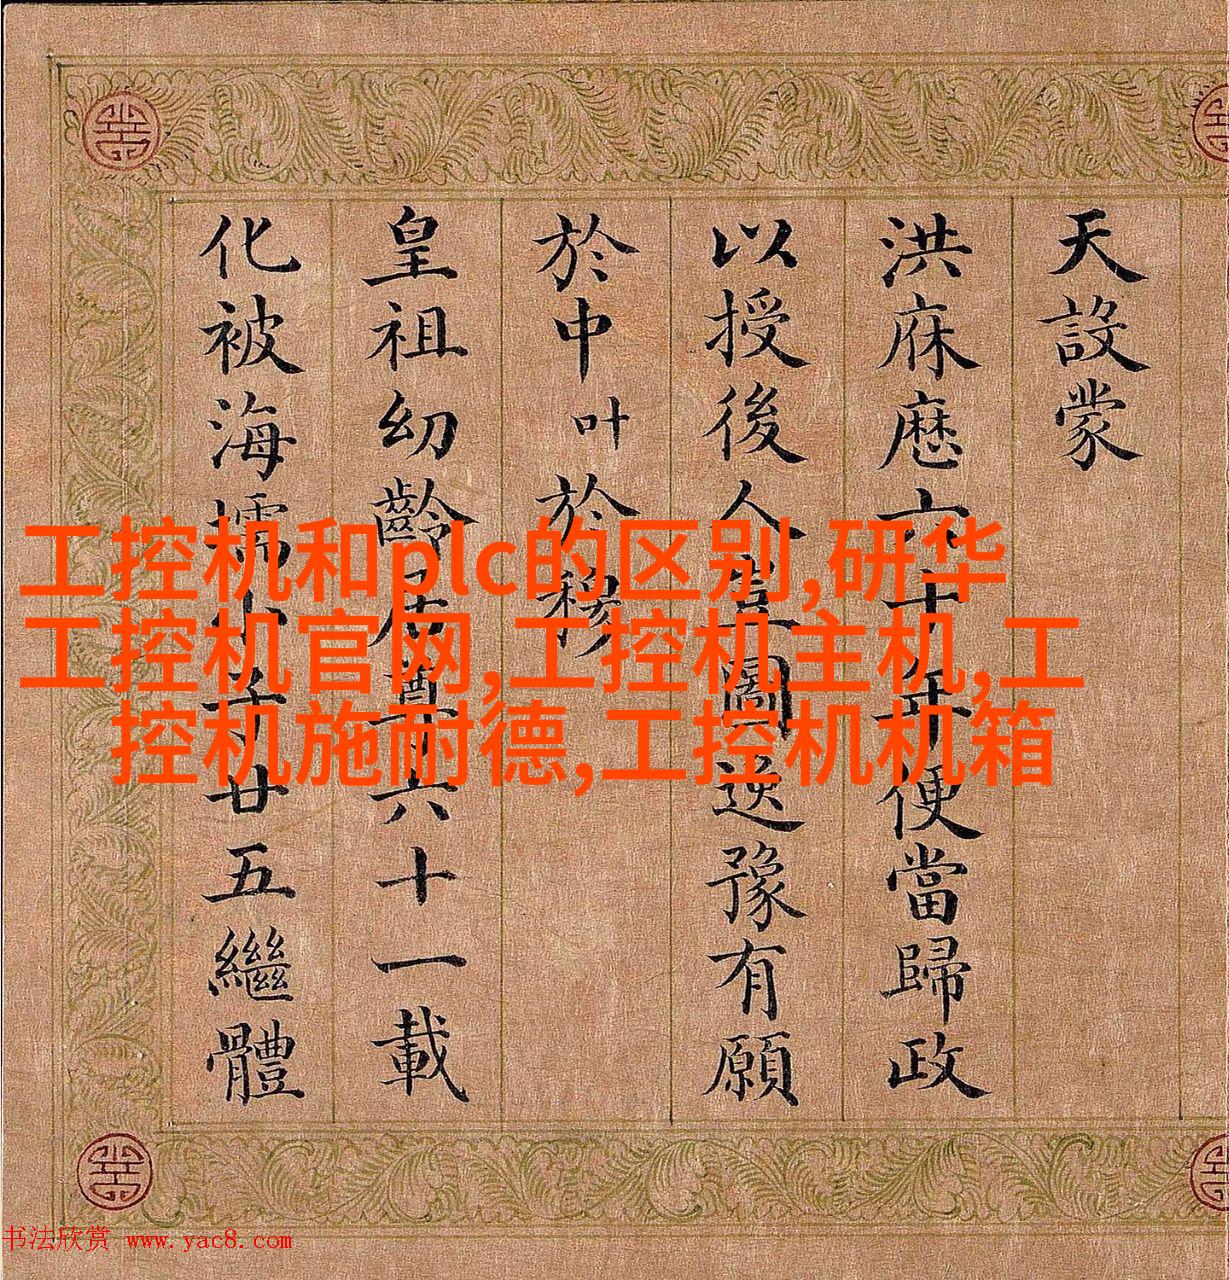 天設蒙
洪庥歴六十年便當歸政
以授後人豈圖逸豫有願
於中叶於穆
皇祖幼齡居尊六十一載
化被海壖小子廿五繼體
工控机和plc的区别,研华
工控机官网,工控机主机,工
控机施耐德,工控机机箱
书法欣赏 www.yac8.com